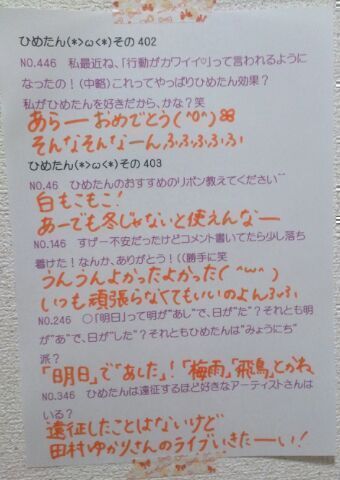 ひめたん(*>ω<*)その402
NO.446　私最近ね、「行動がカワイイ♡」って言われるように
なったの！(中略)これってやっぱりひめたん効果？
私がひめたんを好きだから、かな？笑
あらーおめでとう(^o^)
そんなそんなーんふふふふふ
ひめたん(*>ω<*)その403
NO.46　ひめたんのおすすめのリボン教えてください^^
白もこもこ！
あーでも冬じゃないと使えんなー
NO.146　すげー不安だったけどコメント書いてたら少し落ち
着けた！なんか、ありがとう！((勝手に笑
うんうんよかったよかった(^ω^)
いつも頑張らなくてもいいのよんふふ
NO.246　○「明日」って明が"あし"で、日が"た"？それとも明
が"あ"で、日が"した"？それともひめたんは"みょうにち"
派？
「明日」で「あした」！「梅雨」「飛鳥」とかね
NO.346　ひめたんは遠征するほど好きなアーティストさんは
いる？
遠征したことはないけど
田村ゆかりさんのライブいきたーい！